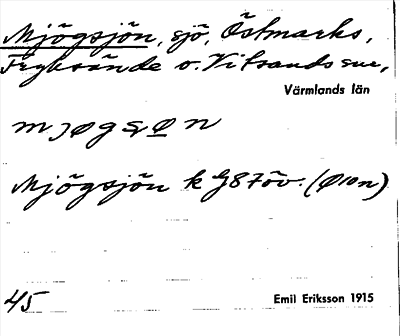 Mjögsjön, sjö, Östmarks,
Fryksände o. Vitsands snr,
Värmlands län
mjøgsøn
Mjögsjön k G87öv. (Ø10n)
45
Emil Eriksson 1915